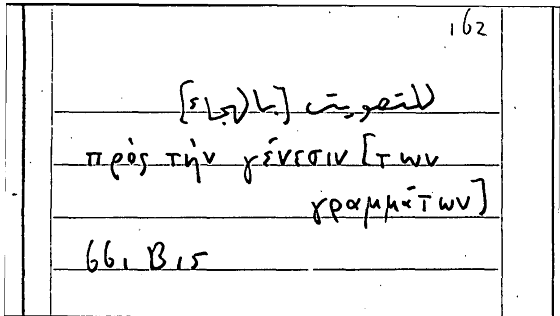 162
للتصويت [بالهجاء]
πρὸς τὴν γένεσιν [των
γραμμάτων]
66, B, 5